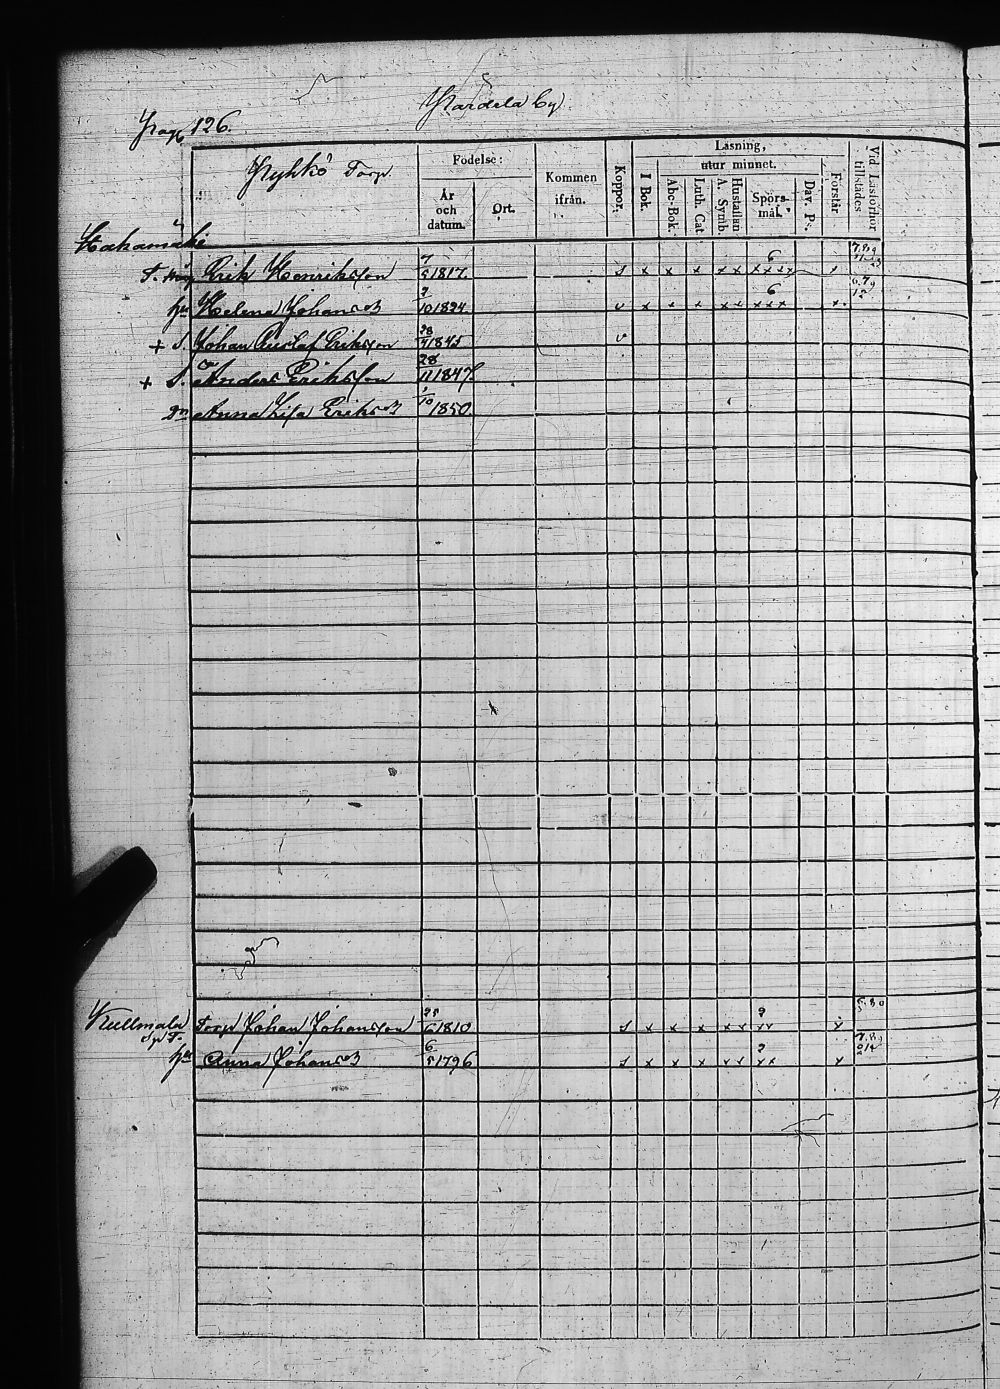 Kardela by.
Pag. 126.
Kyhkö Torp
Födelse:
År och datum.
Ort.
Kommen ifrån.
Koppor.
Läsning,
I Bok.
utur minnet.
Abc-Bok.
Luth. Cat.
Hustaflan A. Symb.
Spörsmål.
Dav. P.
Förstår
Vid Läsförhör tillstädes
Hakamäki
T. Erik Henriksson 7/5 1817. s x x x x x 6 x x x x x
hu Helena Johansd 9/10 1824. v x x x x x 6 x x x x
+ S. Johan Gustaf Eriksson 28/7 1845 v
+ S. Anders Eriksson 28/11 1847.
Dr Anna Lisa Eriksd 1/10 1850
Kullmala Torp Johan Johansson 25/6 1810 s x x x x x 9 x x x 5. 80
hu Anna Johansd 6/5 1796 s x x x x x 9 x x x